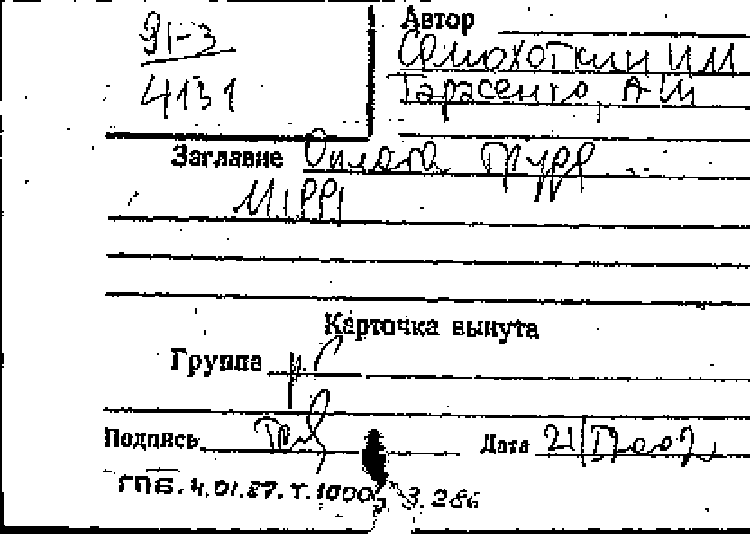 91-3
4131
Автор
Семохоткин ИМ
Тарасенко, А М
Заглавие Оплата труда
М 1991
Карточка вынута
Группа
Подпись
Дата 21/
ГПБ. 4.01.87. Т. 1000, З. 286